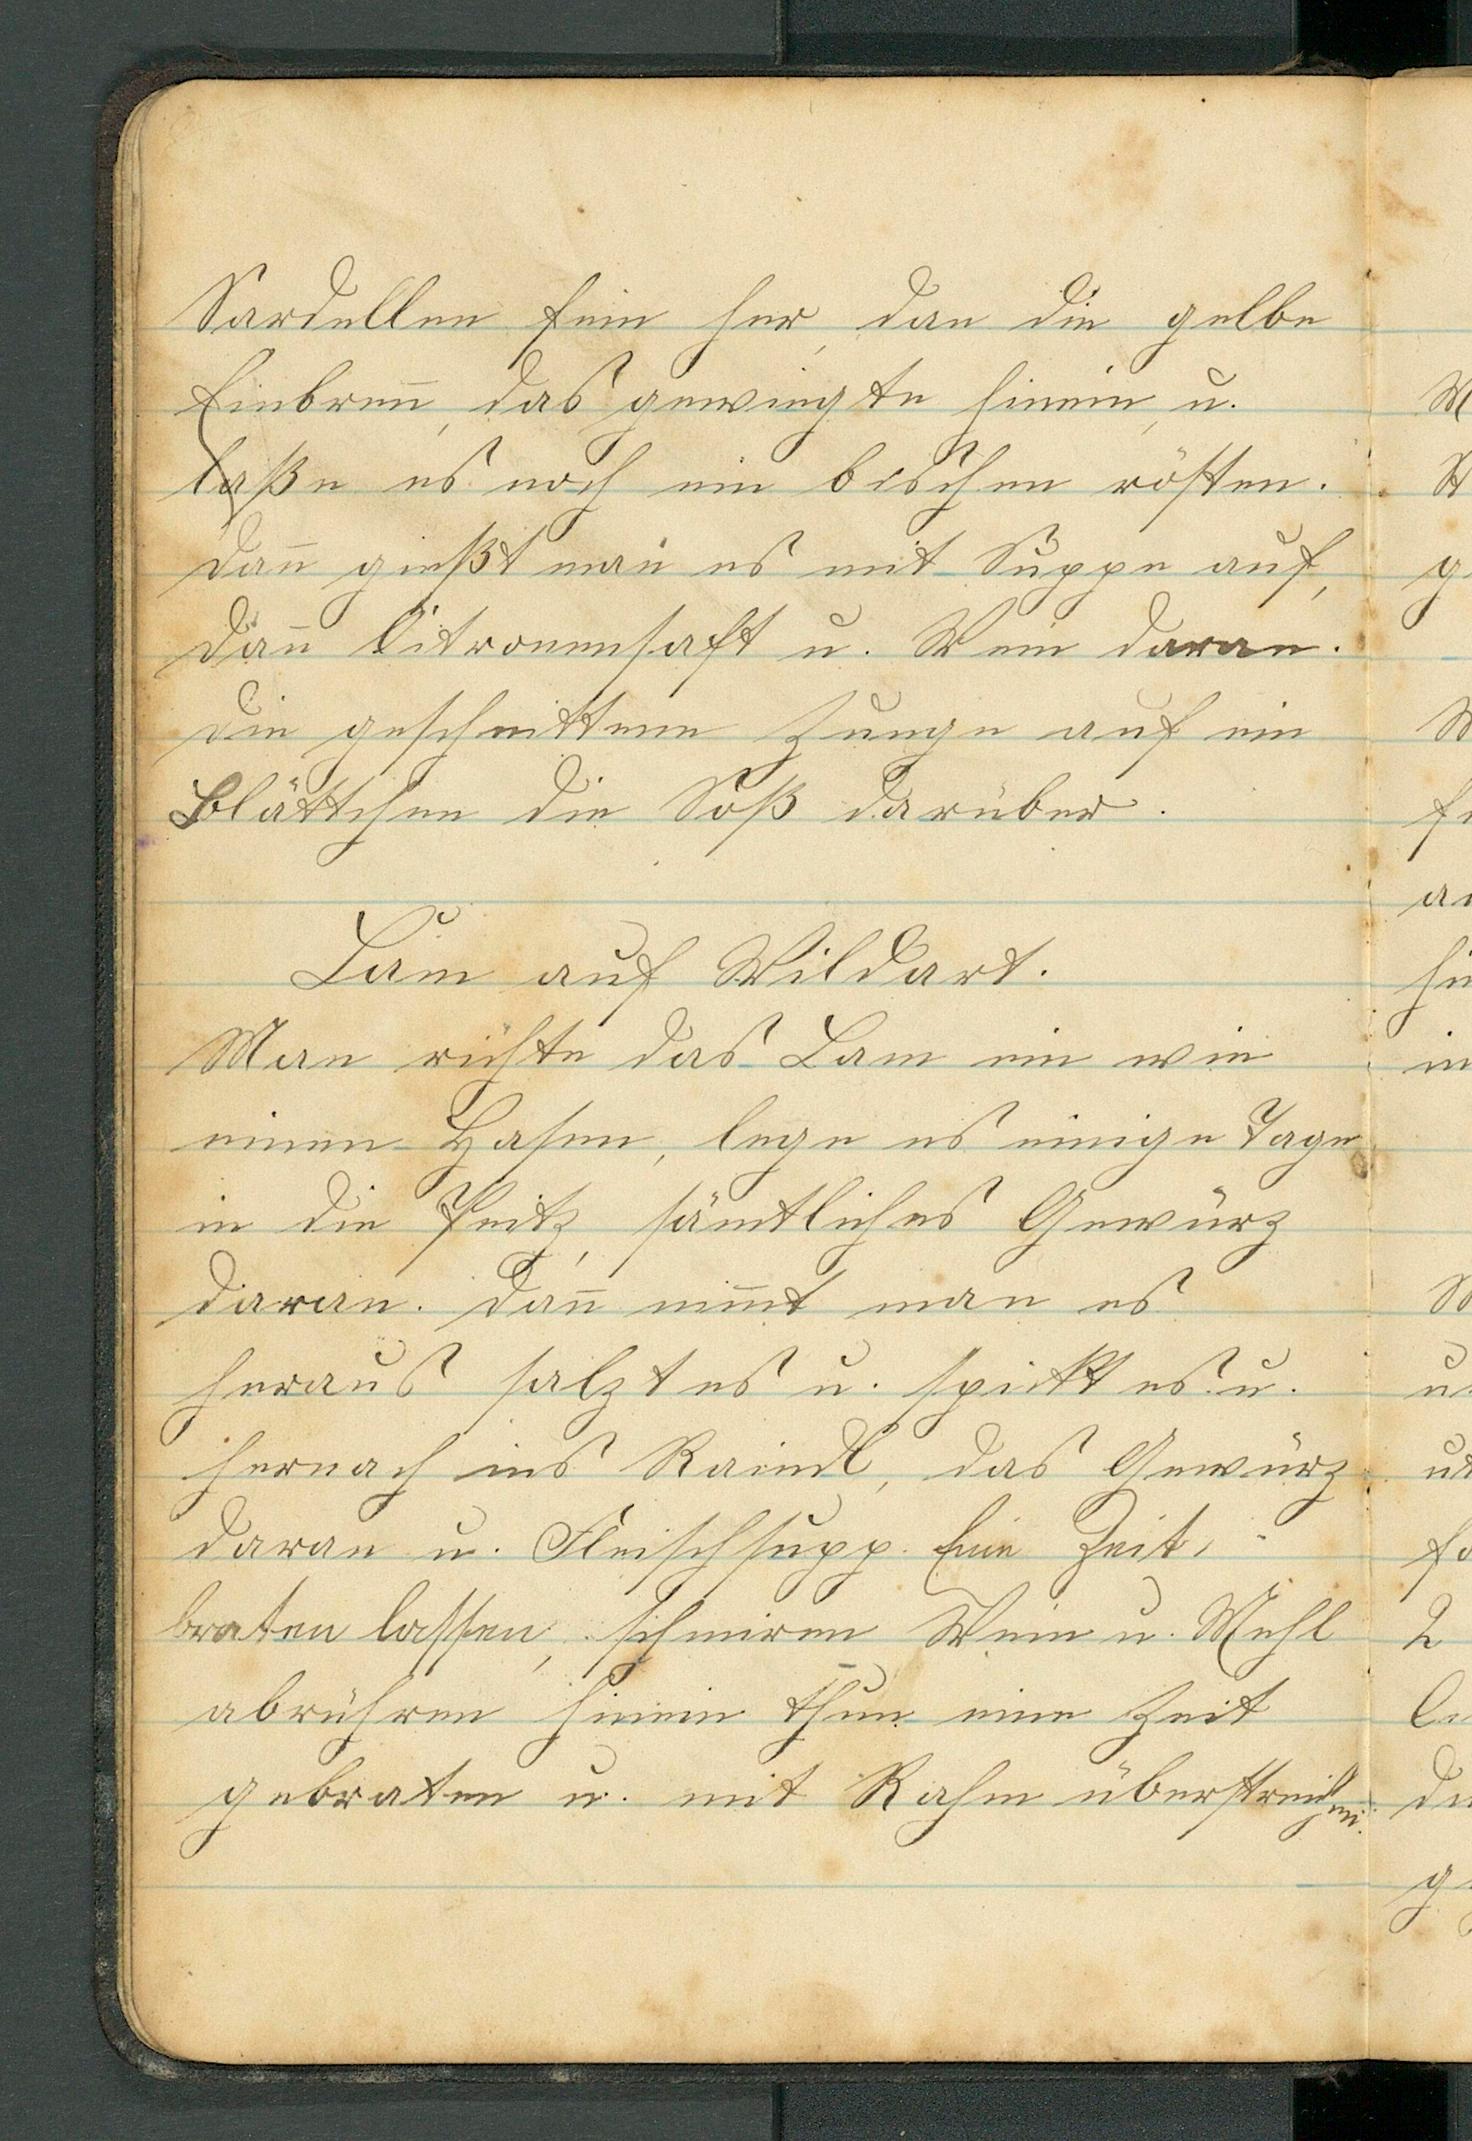 Sardellen fein her, dan die gelbe
Einbren̄, das gewiegte hinein, u.
laße es noch ein bischen rösten.
dan̄ gießt man es mit Suppe auf,
dan̄ Citronensaft u. Wein daran.
die geschnittene Zunge auf ein
Blättchen die Soß darüber.
Lam auf Wildart.
Man richte das Lam ein wie
einen Hasen, lege es einige Tage
in die Peitz, sämtliches Gewürz
daran. dan̄ nim̄t man es
heraus salzt es u. spickt es u.
hernach ins Raindl, das Gewürz
daran u. Fleischsupp. Eine Zeit,
braten lassen, schmiren Wein u. Mehl
abrühren hinein thun eine Zeit
gebraten u. mit Rahm überstreichen.